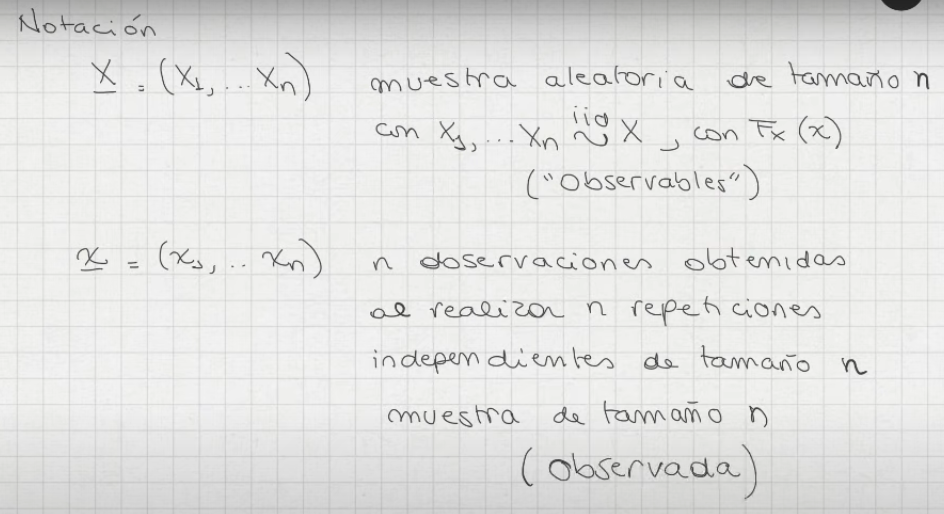 Notación
X = (X1, ... Xn) muestra aleatoria de tamaño n
con X1, ... Xn iid ~ X, con Fx (x)
("Observables")
x = (x1, .. xn) n observaciones obtenidas
al realizar n repeticiones
independientes de tamaño n
muestra de tamaño n
(Observada)